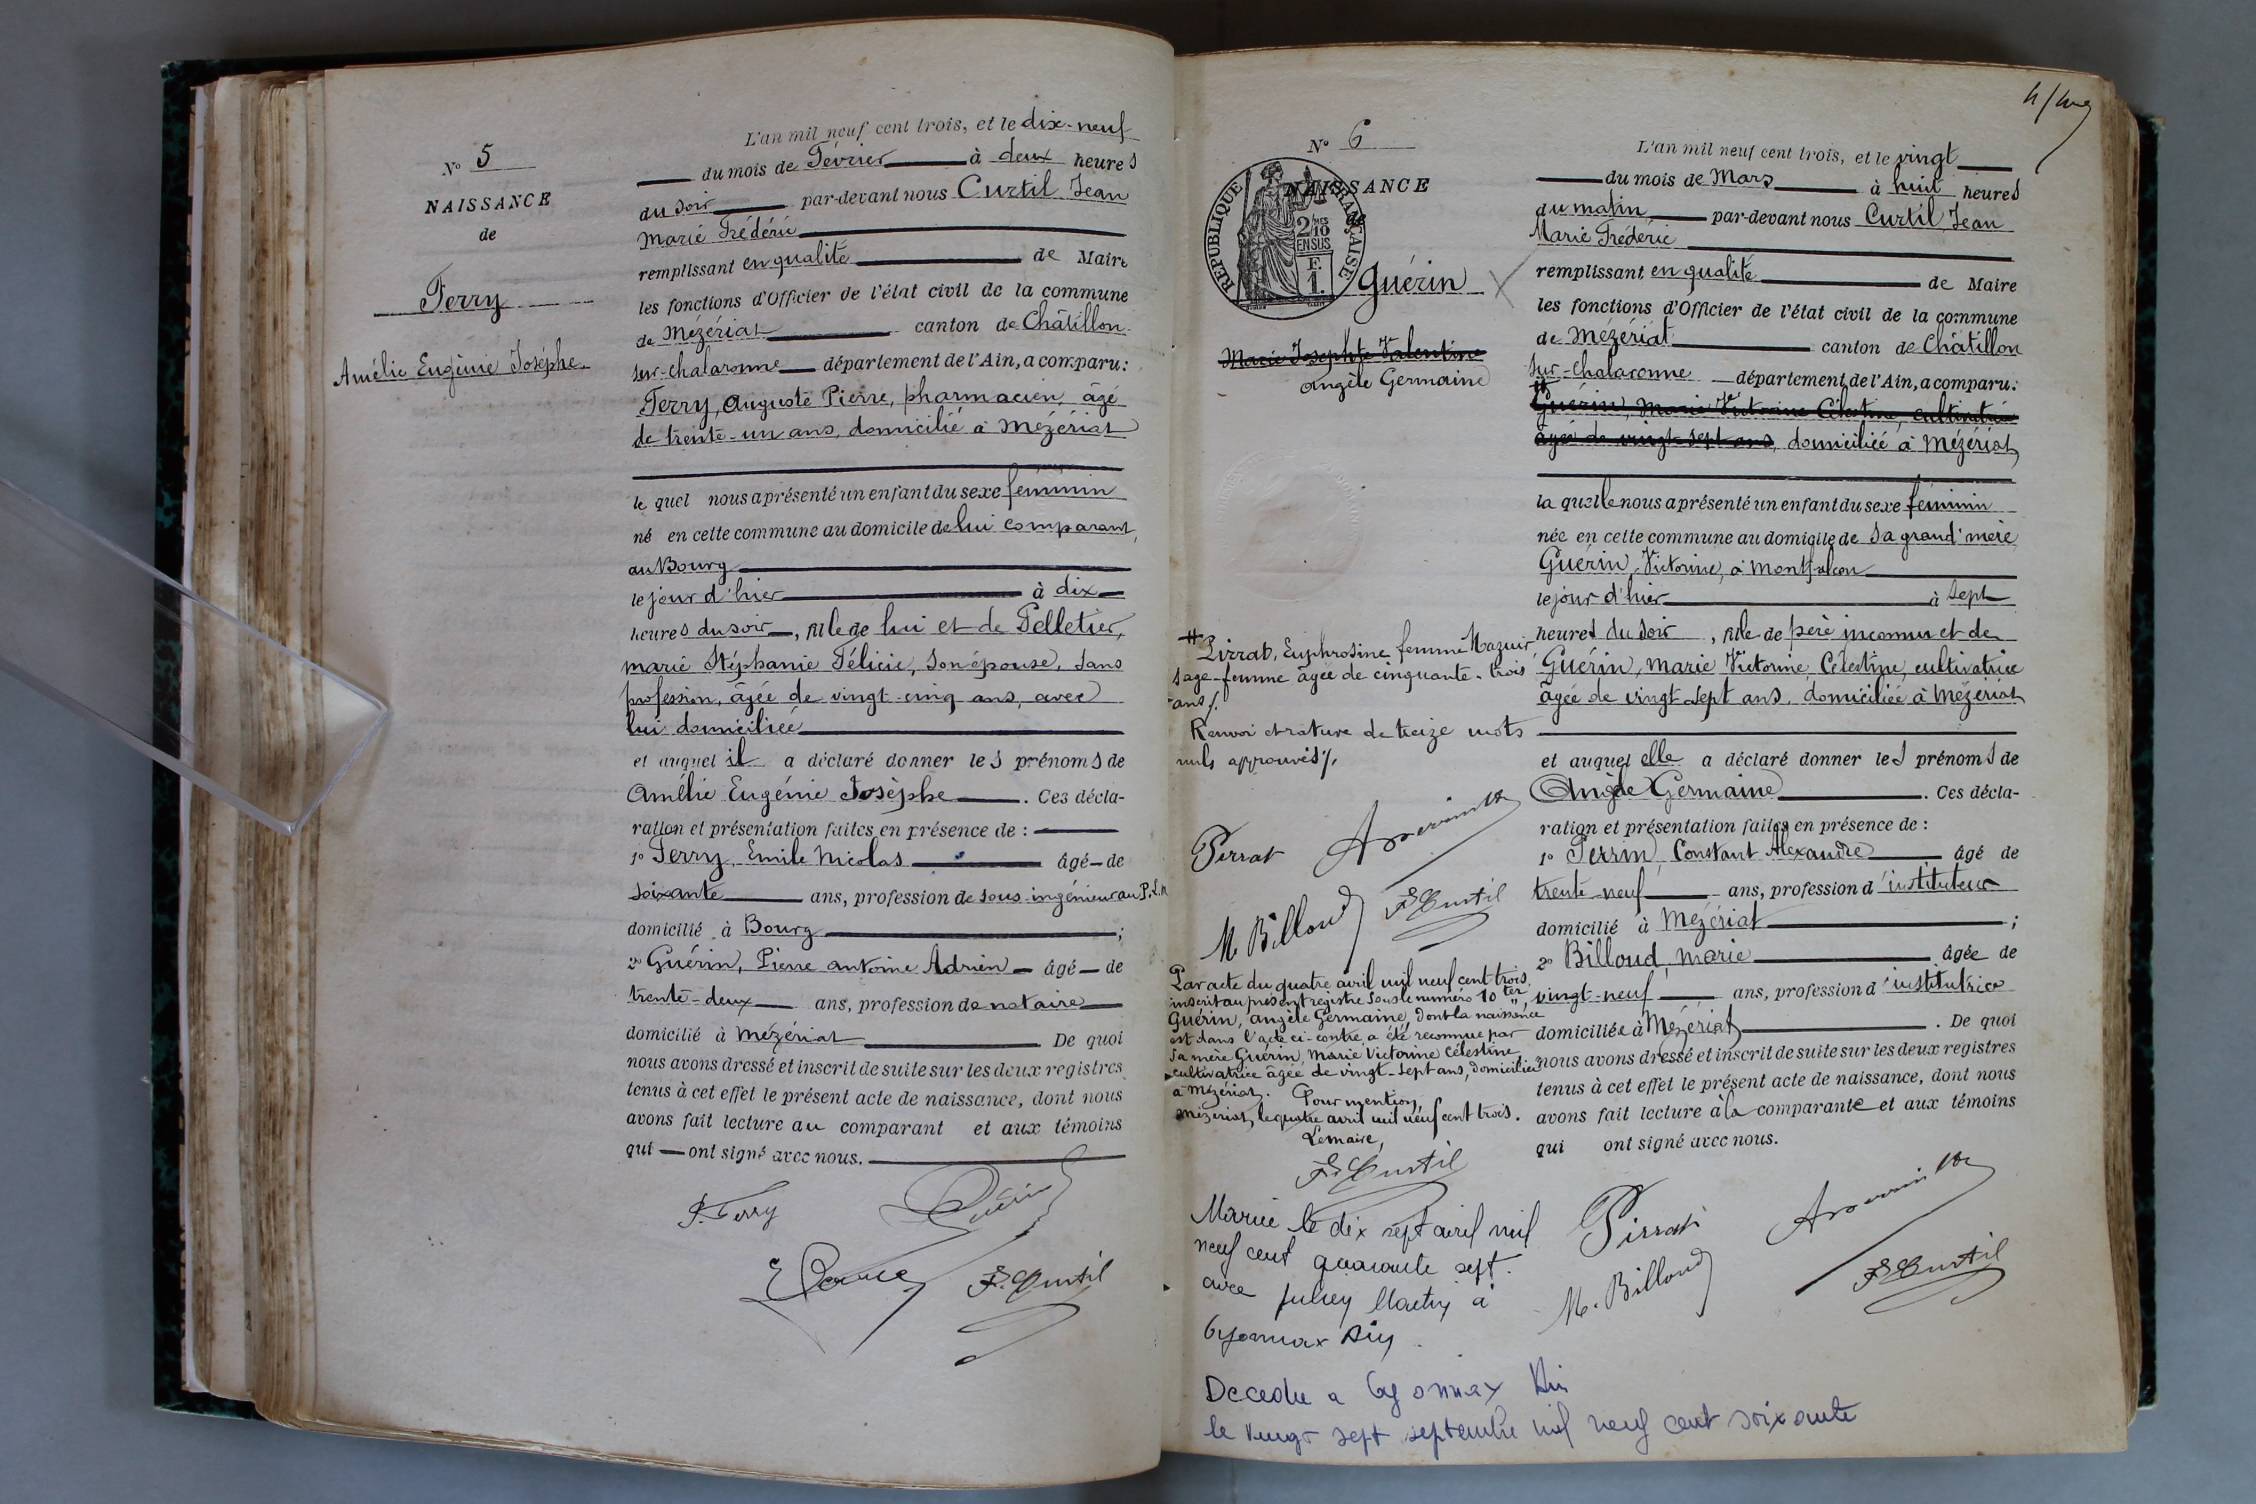 N° 5
NAISSANCE
de
Ferry
Amélie Eugènie Josèphe.
L'an mil neuf cent trois, et le dix-neuf
du mois de Février à deux heures
du soir par-devant nous Curtil Jean
Marie Frédéric
remplissant en qualité de Maire
les fonctions d'Officier de l'état civil de la commune
de Mézériat canton de Châtillon-
sur-chalaronne département de l'Ain, a comparu:
Ferry, Auguste Pierre, pharmacien, âgé
de trente-un ans, domicilié à Mézériat
le quel nous a présenté un enfant du sexe féminin
né en cette commune au domicile de lui comparant,
au Bourg
le jour d'hier à dix
heures du soir, fille de lui et de Pelletier,
marie Stéphanie Félicie, son épouse, sans
profession, âgée de vingt-cinq ans, avec
lui domiciliée
et auquel il a déclaré donner les prénoms de
Amélie Eugénie Josèphe. Ces décla-
ration et présentation faites en présence de :
1° Ferry, Emile Nicolas âgé de
soixante ans, profession de sous-ingénieur au P.L.M
domicilié à Bourg ;
2° Guérin, Pierre antoine Adrien âgé de
trente-deux ans, profession de notaire
domicilié à Mézériat De quoi
nous avons dressé et inscrit de suite sur les deux registres
tenus à cet effet le présent acte de naissance, dont nous
avons fait lecture au comparant et aux témoins
qui ont signé avec nous.
P. Ferry
Guérin
F. Curtil
4/
N° 6
NAISSANCE
de
RÉPUBLIQUE FRANÇAISE
2/10
EN SUS
F.
1.
Guérin
Marie Josephte Valentine
Angèle Germaine
L'an mil neuf cent trois, et le vingt
du mois de Mars à huit heures
du matin par-devant nous Curtil Jean
Marie Frédéric
remplissant en qualité de Maire
les fonctions d'Officier de l'état civil de la commune
de Mézériat canton de Châtillon
sur-Chalaronne département de l'Ain, a comparu:
Guérin, Marie Victorine Célestine, cultivatrice
âgée de vingt-sept ans, domiciliée à Mézériat
la quelle nous a présenté un enfant du sexe féminin
née en cette commune au domicile de sa grand'mère
Guérin, Victorine, à Montfalcon
le jour d'hier à sept
heures du soir, fille de père inconnu et de
Guérin, marie Victorine Célestine, cultivatrice
âgée de vingt sept ans, domiciliée à Mézériat
et auquel elle a déclaré donner les prénoms de
Angèle Germaine. Ces décla-
ration et présentation faites en présence de :
1° Perrin Constant Alexandre âgé de
trente-neuf ans, profession d'instituteur
domicilié à Mézériat ;
2° Billoud, marie âgée de
vingt-neuf ans, profession d'institutrice
domiciliée à Mézériat. De quoi
nous avons dressé et inscrit de suite sur les deux registres
tenus à cet effet le présent acte de naissance, dont nous
avons fait lecture à la comparante et aux témoins
qui ont signé avec nous.
Pirrat
M. Billoud
F Curtil
# Pirrat, Euphrosine femme Mazuir,
sage-femme âgée de cinquante-trois
ans/.
Renvoi et rature de treize mots
nuls approuvés/.
Pirrat
M. Billoud
F Curtil
Par acte du quatre avril mil neuf cent trois,
inscrit au présent registre sous le numéro 10 ter,
Guérin, angèle Germaine, dont la naissance
est dans l'acte ci-contre a été reconnue par
sa mère Guérin, Marie Victorine Célestine
cultivatrice âgée de vingt-sept ans, domiciliée
à Mézériat. Pour mention,
Mézériat, le quatre avril mil neuf cent trois.
Le maire,
F. Curtil
Mariée le dix sept avril mil
neuf cent quarante sept.
avec à
Oyonnax Ain
Decedee a Oyonnax Ain
le vingt sept septembre mil neuf cent soixante